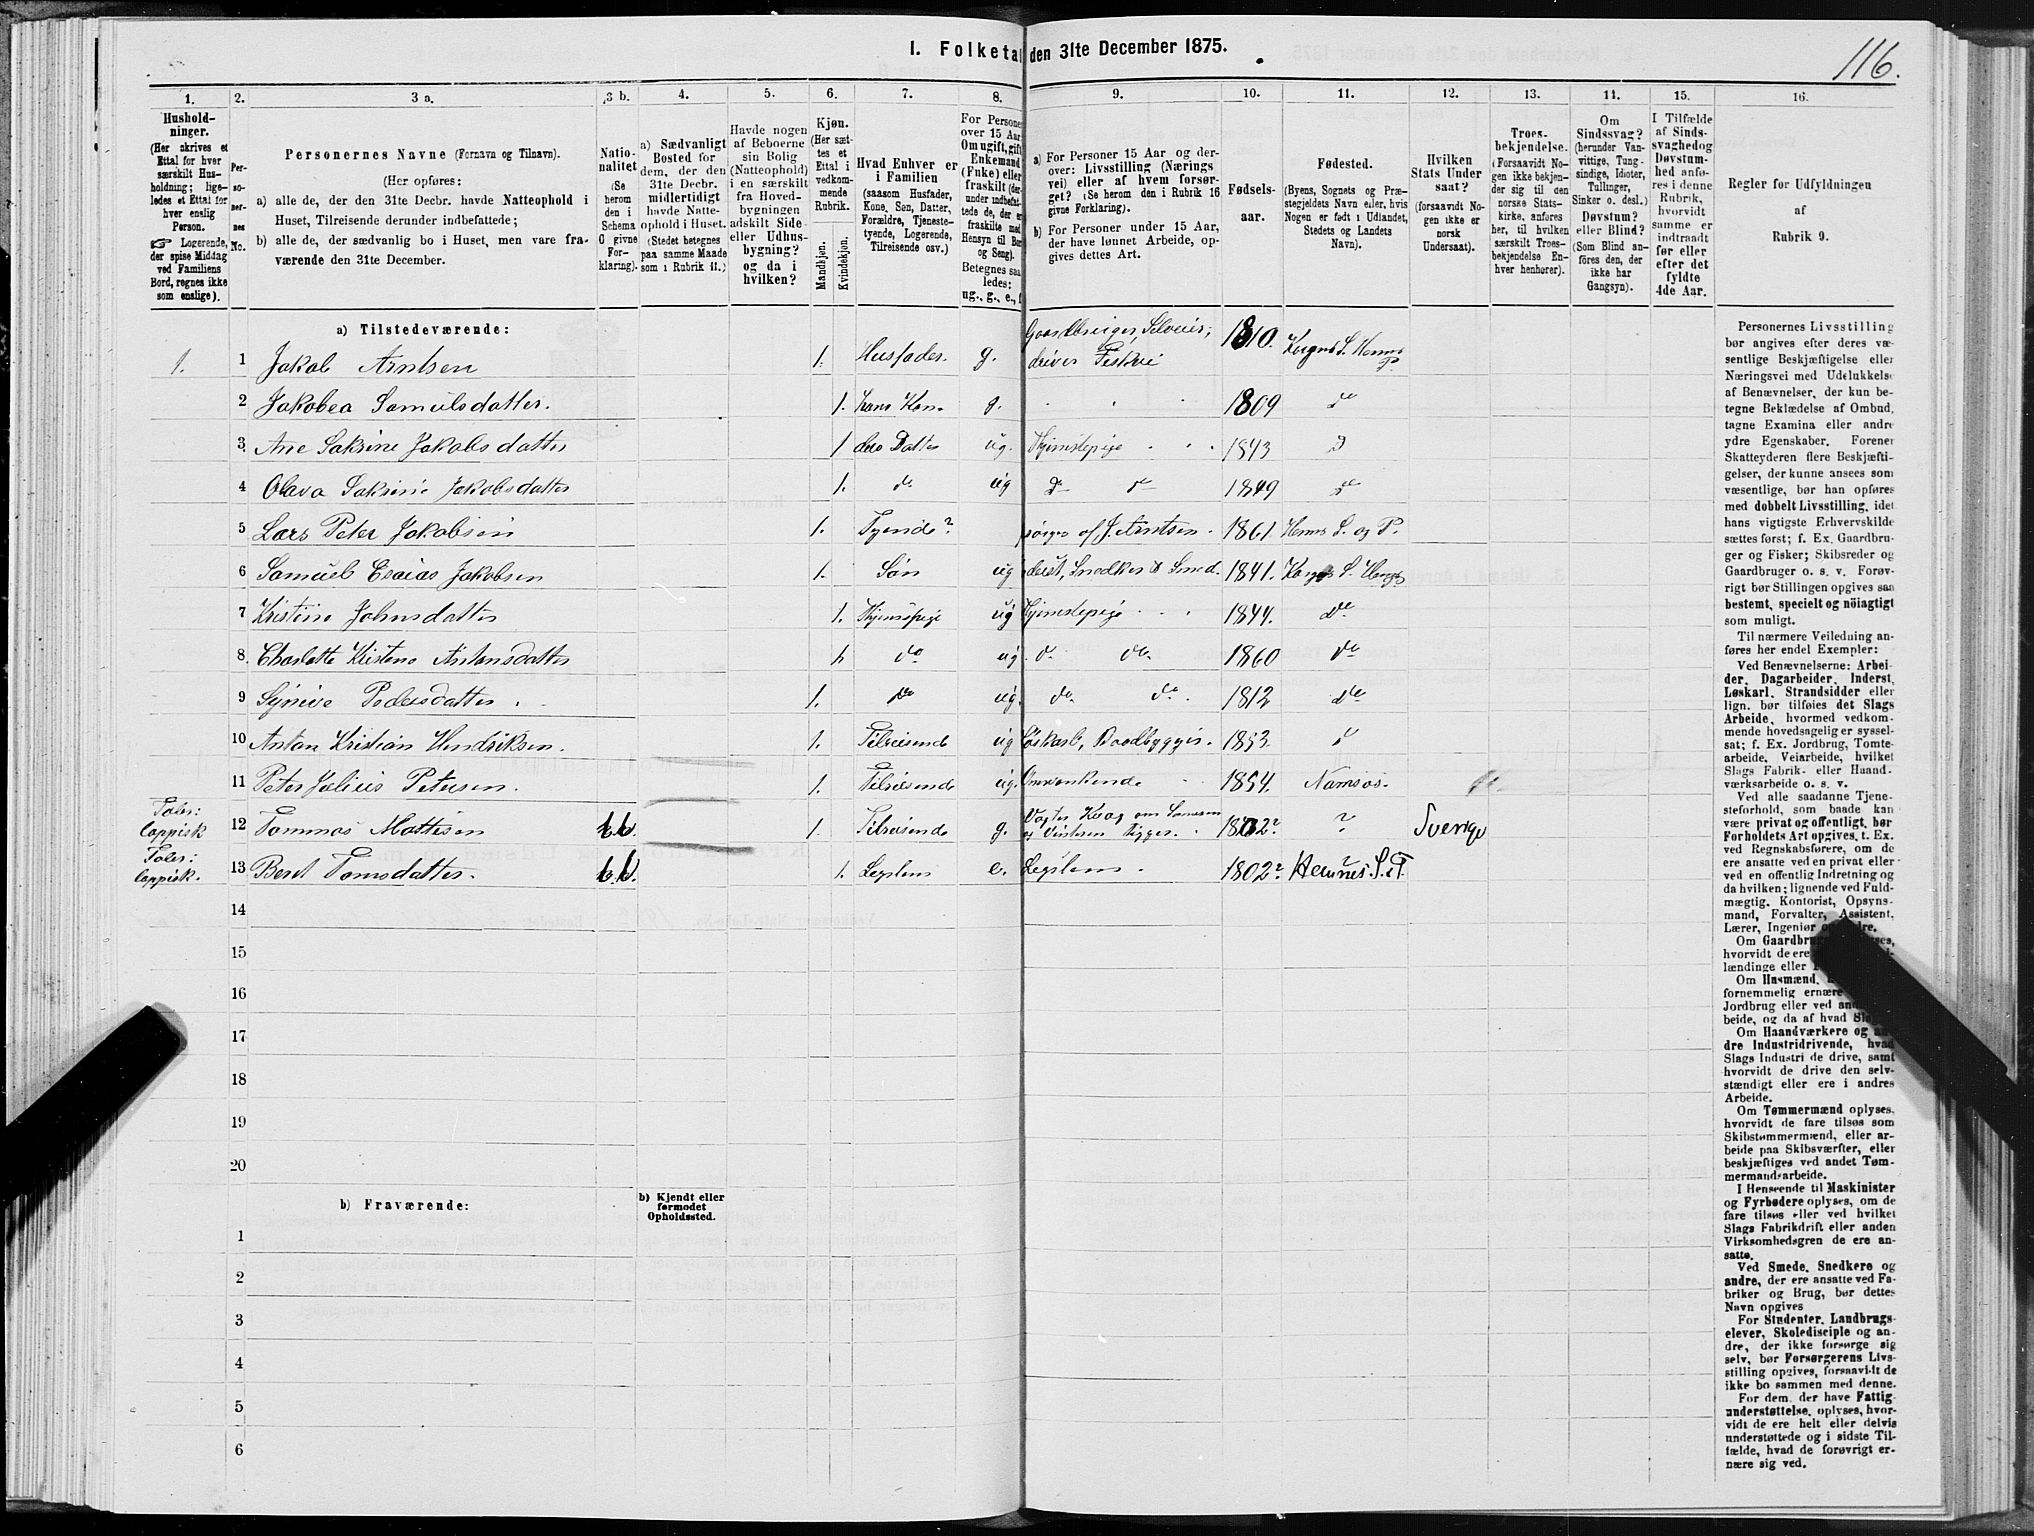 I. Folketal den 31te December 1875.
116.
1. 2. 3 a. 3 b. 4. 5. 6. 7. 8. 9. 10. 11. 12. 13. 14. 15. 16.
Hushold-
ninger.
(Her skrives et
Ettal for hver
særskilt Hus-
holdning; lige-
ledes et Ettal for
hver enslig
Person.
☞ Logerende,
der spise Middag
ved Familiens
Bord, regnes ikke
som enslige).
Per-
so-
ner-
nes
No.
Personernes Navne (Fornavn og Tilnavn).
(Her opføres:
a) alle de, der den 31te Decbr. havde Natteophold i
Huset, Tilreisende derunder indbefattede;
b) alle de, der sædvanlig bo i Huset, men vare fra-
værende den 31te December.
Natio-
nalitet
(Se
herom
den i
Schema
C givne
For-
klaring).
a) Sædvanligt
Bosted for
dem, der den
31te Decbr.
midlertidigt
havde Natte-
ophold i Huset.
(Stedet betegnes
paa samme Maade
som i Rubrik 11.)
Havde nogen
af Beboerne
sin Bolig
(Natteophold)
i en særskilt
fra Hoved-
bygningen
adskilt Side-
eller Udhus-
bygning?
og da i
hvilken?
Kjøn.
(Her sæt-
tes et
Ettal i
vedkom-
mende
Rubrik.
Mandkjøn.
Kvindekjøn.
Hvad Enhver er
i Familien
(saasom Husfader,
Kone, Søn, Datter,
Forældre, Tjeneste-
tyende, Logerende,
Tilreisende osv.)
For Persone
over 15 Aar
Om ugift, gift
Enkemand
(Enke) eller
fraskilt (der-
under indbefat-
tede de, der er
fraskilte med
Hensyn til Bo
og Seng).
Betegnes saa
ledes:
ug., g., e., f
a) For Personer 15 Aar og der-
over: Livsstilling (Nærings
vei) eller af hvem forsør-
get? (Se herom den i Rubrik 16
givne Forklaring).
b) For Personer under 15 Aar,
der have lønnet Arbeide, op-
gives dettes Art.
Fødsels-
aar.
Fødested.
(Byens, Sognets og Præ-
stegjeldets Navn eller, hvis
Nogen er født i Udlandet,
Stedets og Landets
Navn).
Hvilken
Stats Under
saat?
(forsaavidt No-
gen ikke er
norsk
Undersaat).
Troes-
bekjendelse.
(Forsaavidt No-
gen ikke bekjen-
der sig til den
norske Stats-
kirke, anføres
her, til hvilken
særskilt Troes-
bekjendelse En-
hver henhører).
Om
Sindssvag?
(herunder Van-
vittige, Tung-
sindige, Idioter,
Tullinger,
Sinker o. desl.)
Døvstum?
eller Blind?
(Som Blind an-
føres den, der
ikke har
Gangsyn).
I Tilfælde
af Sinds-
svaghedog
Døvstum-
hed anfø-
res i denne
Rubrik,
hvorvidt
samme er
indtraadt
før eller
efter det
fyldte
4de Aar.
Regler for Udfyldningen
af
Rubrik 9.
a) Tilstedeværende:
1. 1 Jakob Arntsen 1. Husfader. g. Gaardbruger, Selveier, driver Fiskeri 1810. Korgens S. Hemnes P.
2 Jakobea Samuelsdatter. 1. hans Kone g. 1809 do
3. Ane Sakrine Jakobsdatter 1 deres Datter ug. Hjemmepige 1843 D
4 Olava Sakrine Jakobsdatter 1. do ug do do 1849 do
5 Lars Peter Jakobsen 1. Tyende? sørges af J. Arntsen. 1861. Hemnes S. og P.
6 Samuel Esaias Jakobsen 1. Søn ug Snedker & Smed. 1841. Korgens S. Hemnes
7 Kristine Johnsdatter 1. ug Tjenestepige 1844. do
8. Charlotte Kristene Antonsdatter 1. do ug do do 1860 do
9 Synive Pedersdatter 1. do ug. do do 1812 do
10 Anton Kristian Hendriksen. 1. Tilreisende ug Løskarl, Baadbygger. 1853. d
11 Peter Julius Petersen. 1. Tilreisende ug. Omvankende 1854. Namsos.
Taler:
lappisk 12 Tommas Mattisen b.b. 1. Tilreisende g. Vogter Kreag om Sommeren
og Vinteren Tigger. 1802? ? Sverige
Taler:
lappisk. 13 Beret Tomsdatter. b.b. 1. Legslem e. Legslem. 1802? Hemnes S. & P.
14
15
16
17
18
19
20
b) Fraværende:
b) Kjendt eller
formodet
Opholdssted.
1
2
3
4
5
6
Personernes Livsstilling
bør angives efter deres væ-
sentlige Beskjæftigelse eller
Næringsvei med Udelukkelse
af Benævnelser, der kun be-
tegne Beklædelse af Ombud,
tagne Examina eller andre
ydre Egenskaber. Forener
Skatteyderen flere Beskjæfti-
gelser, der kunne ansees som
væsentlige, bør han opføres
med dobbelt Livsstilling, idet
hans vigtigste Erhvervskilde
sættes først; f. Ex. Gaardbru-
ger og Fisker; Skibsreder og
Gaardbruger o. s. v. Forøv-
rigt bør Stillingen opgives saa
bestemt, specielt og nöiagtigt
som muligt.
Til nærmere Veiledning an-
føres her endel Exempler:
Ved Benævnelserne: Arbei-
der, Dagarbeider, Inderst,
Løskarl, Strandsidder eller
lign. bør tilføies det Slags
Arbeide, hvormed vedkom-
mende hovedsagelig er syssel-
sat; f. Ex. Jordbrug, Tomte-
arbeide, Veiarbeide, hvilket
Slags Fabrik- eller Haand-
værksarbeide o. s. v.
Ved alle saadanne Tjene-
steforhold, som baade kan
være privat og offentligt, bør
Forholdets Art opgives, t. Ex.
ved Regnskabsførere, om de
ere ansatte ved en privat eller
ved en offentlig Indretning og
da hvilken; lignende ved Fuld-
mægtig, Kontorist, Opsyns-
mand, Forvalter, Assistent,
Lærer, Ingeniør og
Om Gaardbrug
hvorvidt de ere
lændinge eller
Om Husmænd,
fornemmelig ernære
Jordbrug eller ved an
beide, og da af hvad
Om Haandværkere og an-
dre Industridrivende, hvad
Slags Industri de drive, samt
hvorvidt de drive den selv-
stændigt eller ere i andres
Arbeide.
Om Tømmermænd oplyses,
hvorvidt de fare tilsøs som
Skibstømmermænd, eller ar-
beide paa Skibsværfter, eller
beskjæftiges ved andet Tøm-
mermandsarbeide.
I Henseende til Maskinister
og Fyrbødere oplyses, om de
fare tilsøs eller ved hvilket
Slags Fabrikdrift eller anden
Virksomhedsgren de ere an-
satte.
Ved Smede, Snedkere og
andre, der ere ansatte ved Fa-
briker og Brug, bør dettes
Navn opgives
For Studenter, Landbrugs-
elever, Skoledisciple og an-
dre, der ikke forsørge sig
selv, bør Forsørgerens Livs-
stilling opgives, forsaavidt de
ikke bo sammen med denne.
For dem, der have Fattig-
understøttelse, oplyses, hvor-
vidt de ere helt eller delvis
understøttede og i sidste Til-
fælde, hvad de forøvrigt er-
nære sig ved.